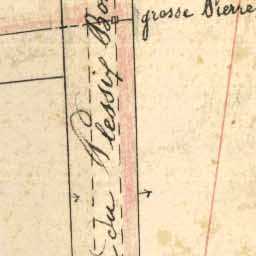 grosse Pierre
du Plessix Bo